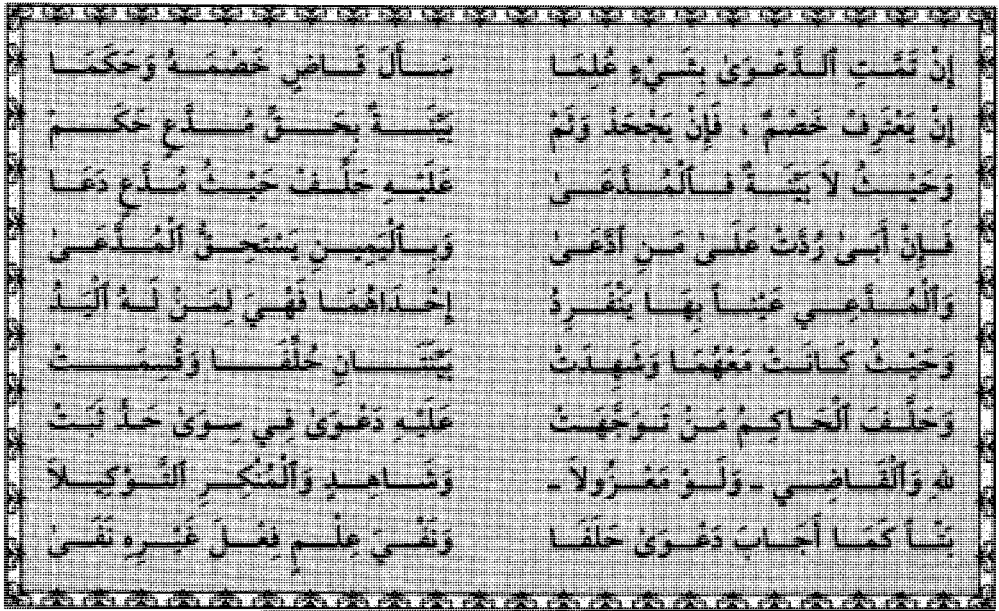 إِنْ تَمَّتِ ٱلدَّعْوَىٰ بِشَيْءٍ عُلِمَا سَأَلَ قَاضٍ خَصْمَهُ وَحَكَمَا
إِنْ يَعْتَرِفْ خَصْمٌ ، فَإِنْ يَجْحَدْ وَثَمْ بَيِّنَةٌ بِحَقِّ مُدَّعٍ حَكَمْ
وَحَيْثُ لاَ بَيِّنَةٌ فَٱلْمُدَّعَىٰ عَلَيْهِ حَلِّفْ حَيْثُ مُدَّعٍ دَعَا
فَإِنْ أَبَىٰ رُدَّتْ عَلَىٰ مَنِ ٱدَّعَىٰ وَبِٱلْيَمِينِ يَسْتَحِقُّ ٱلْمُدَّعَىٰ
وَٱلْمُدَّعِي عَيْناً بِهَا يَنْفَرِدُ إِحْدَاهُمَا فَهْيَ لِمَنْ لَهُ ٱلْيَدُ
وَحَيْثُ كَانَتْ مَعْهُمَا وَشَهِدَتْ بَيِّنَتَانِ حُلِّفَا وَقُسِمَتْ
وَحَلَّفَ ٱلْحَاكِمُ مَنْ تَوَجَّهَتْ عَلَيْهِ دَعْوَىٰ فِي سِوَىٰ حَدٍّ ثَبَتْ
للهِ وَٱلْقَاضِي ـ وَلَوْ مَعْزُولاَ ـ وَشَاهِدٍ وَٱلْمُنْكِرِ ٱلتَّوْكِيلاَ
بَتّاً كَمَا أَجَابَ دَعْوَىٰ حَلَفَا وَنَفْيَ عِلْمٍ فِعْلَ غَيْرِهِ نَفَىٰ